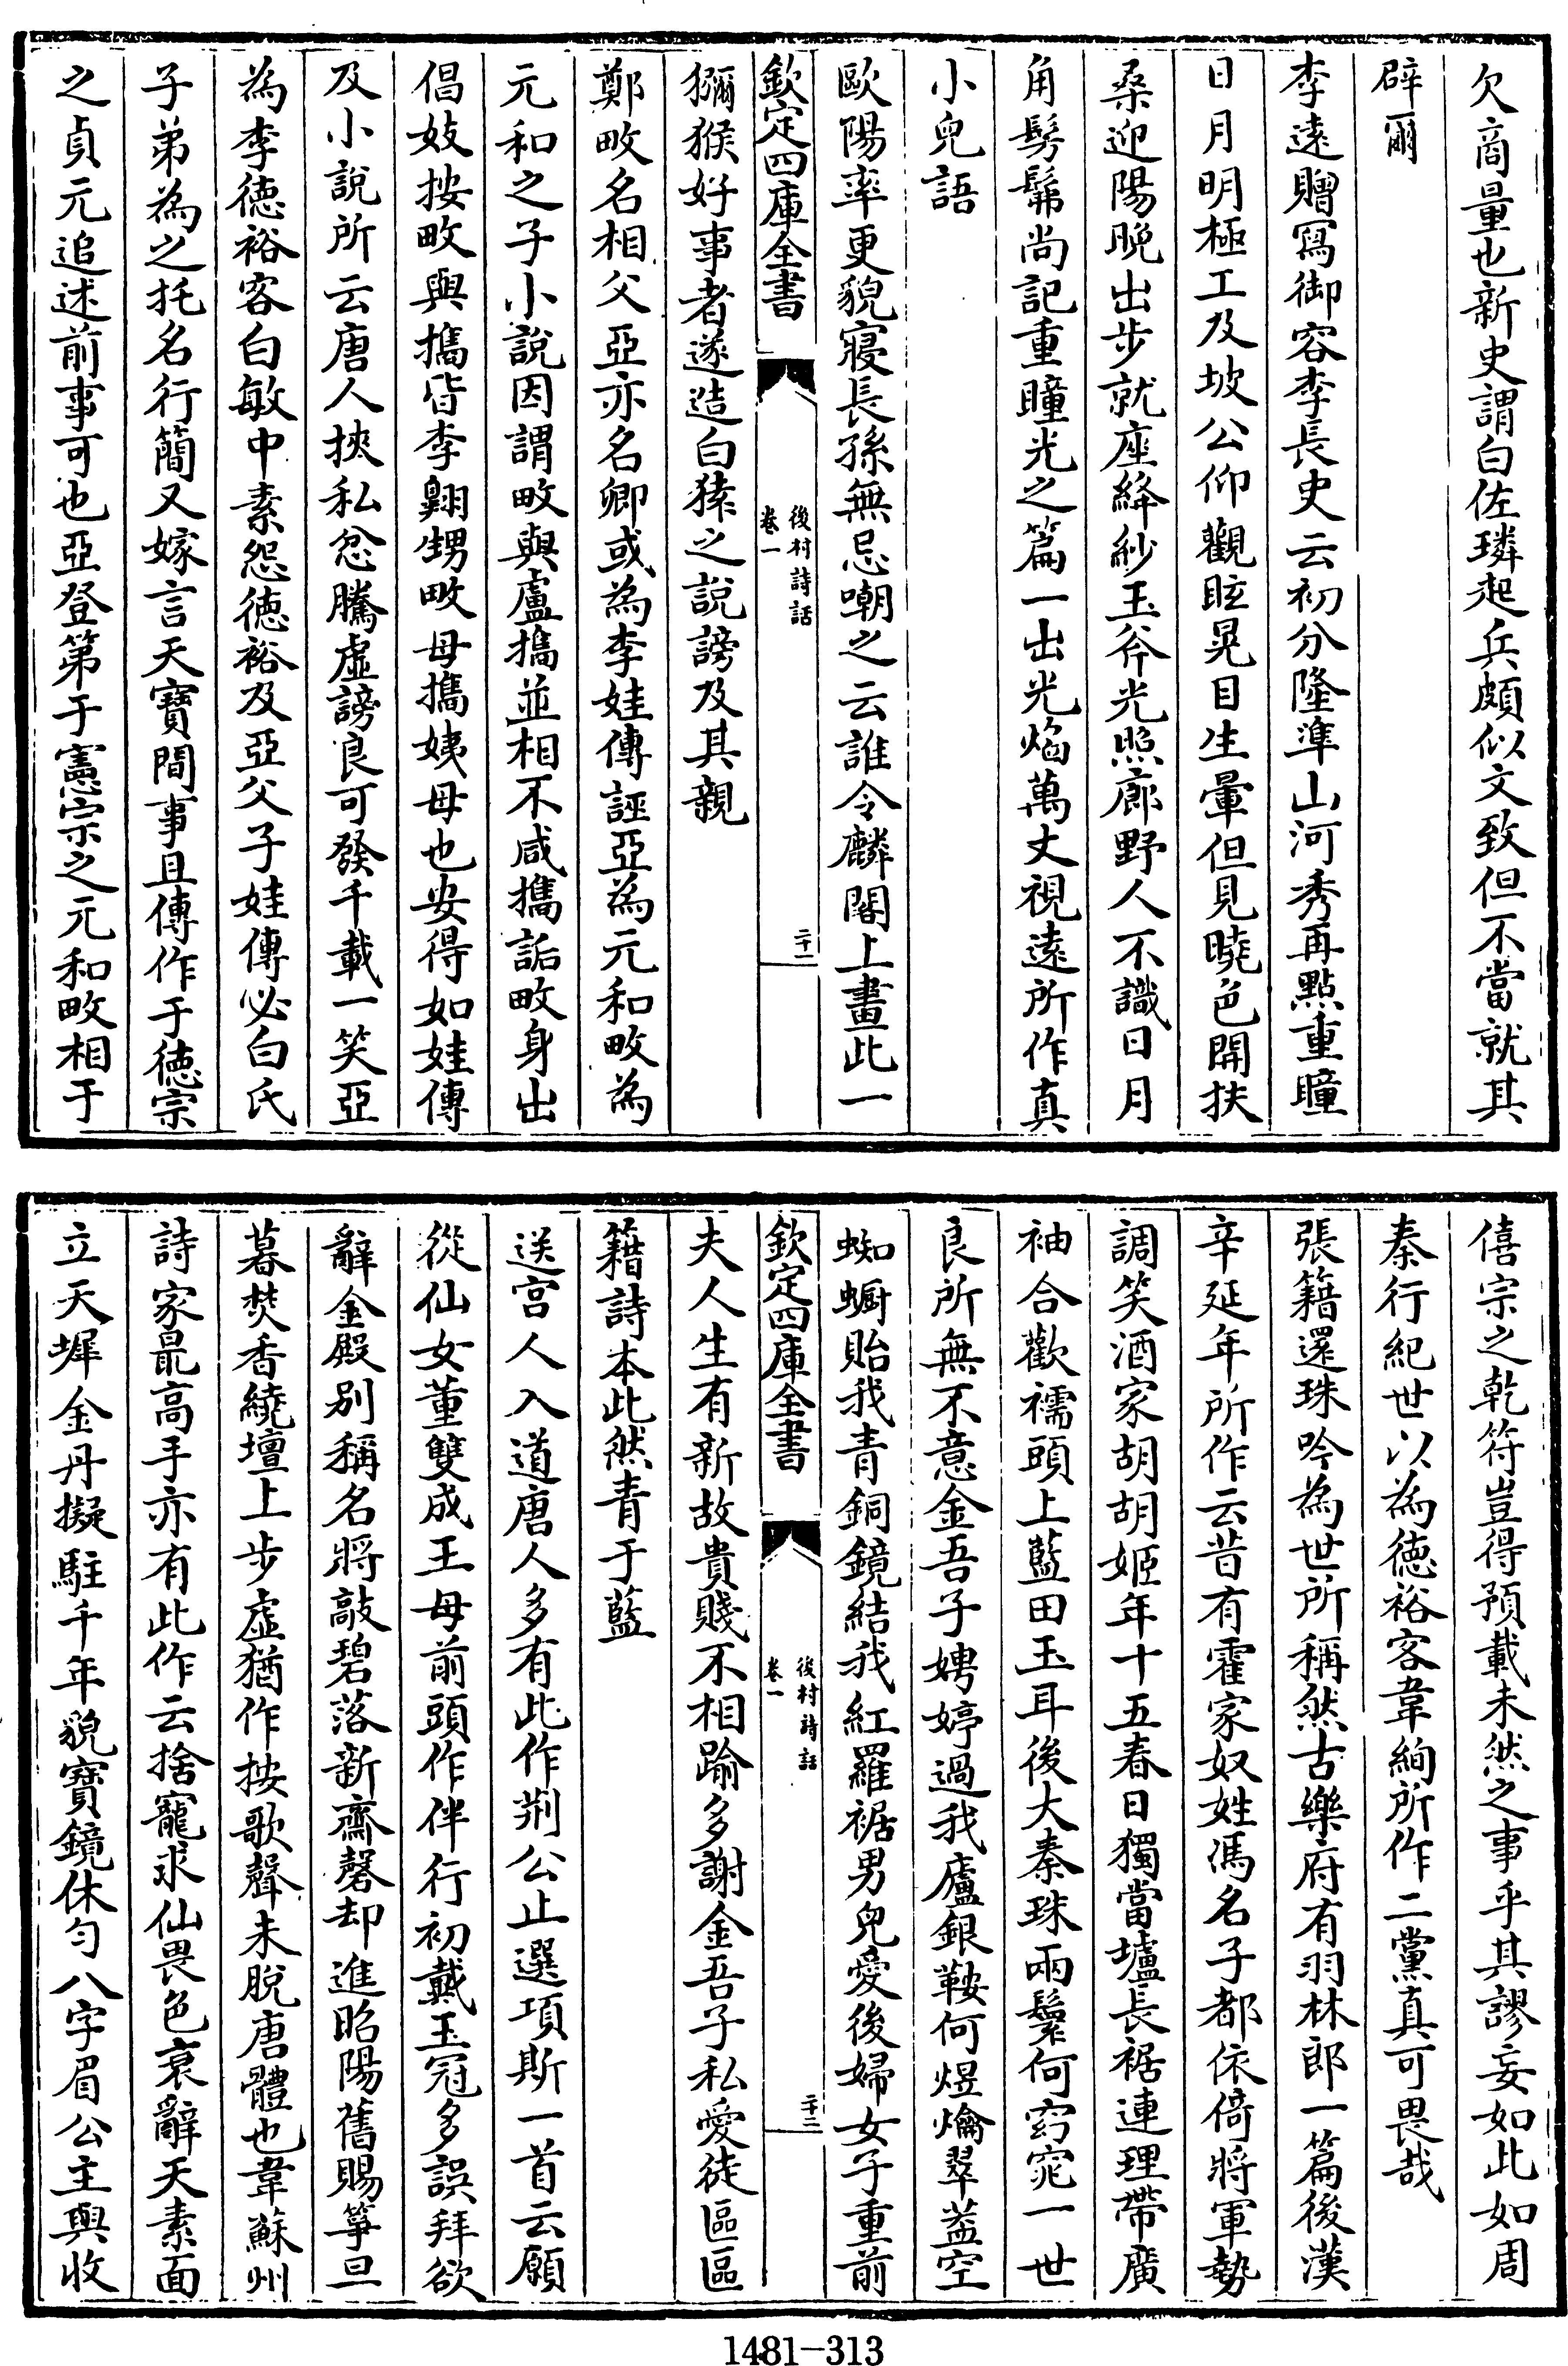 欠商量也新史謂白佐璘起兵頗似文致但不當就其
辟爾
李遠贈寫御容李長史云初分隆準山河秀再點重瞳
日月明極工及坡公仰觀眩晃目生暈但見曉色開扶
桑迎陽晚出步就座絳紗玉斧光照廊野人不識日月
角髣髴尚記重瞳光之篇一出光焰萬丈視遠所作真
小兒語
歐陽率更貌寢長孫無忌嘲之云誰令麟閣上畫此一
欽定四庫全書
後村詩話
卷一
二十一
獼猴好事者遂造白猿之說謗及其親
鄭畋名相父亞亦名卿或為李娃傳誣亞為元和畋為
元和之子小說因謂畋與盧攜並相不咸攜詬畋身出
倡妓按畋與攜皆李翺甥畋母攜姨母也安得如娃傳
及小說所云唐人挾私忿騰虛謗良可發千載一笑亞
為李徳裕客白敏中素怨徳裕及亞父子娃傳必白氏
子弟為之托名行簡又嫁言天寶間事且傳作于徳宗
之貞元追述前事可也亞登第于憲宗之元和畋相于
僖宗之乾符豈得預載未然之事乎其謬妄如此如周
秦行紀世以為徳裕客韋絢所作二黨真可畏哉
張籍還珠吟為世所稱然古樂府有羽林郎一篇後漢
辛延年所作云昔有霍家奴姓馮名子都依倚將軍勢
調笑酒家胡胡姬年十五春日獨當壚長裾連理帶廣
袖合歡襦頭上藍田玉耳後大秦珠兩鬟何窈窕一世
良所無不意金吾子娉婷過我廬銀鞍何煜爚翠蓋空
蜘蟵貽我青銅鏡結我紅羅裾男兒愛後婦女子重前
欽定四庫全書
後村詩話
卷一
二十二
夫人生有新故貴賤不相踰多謝金吾子私愛徒區區
籍詩本此然青于藍
送宫人入道唐人多有此作荆公止選項斯一首云願
從仙女董雙成王母前頭作伴行初戴玉冠多誤拜欲
辭金殿別稱名將敲碧落新齋磬却進昭陽舊賜箏旦
暮焚香繞壇上步虛猶作按歌聲未脫唐體也韋蘇州
詩家最高手亦有此作云捨寵求仙畏色衰辭天素面
立天墀金丹擬駐千年貌寶鏡休勻八字眉公主與收
1481-313